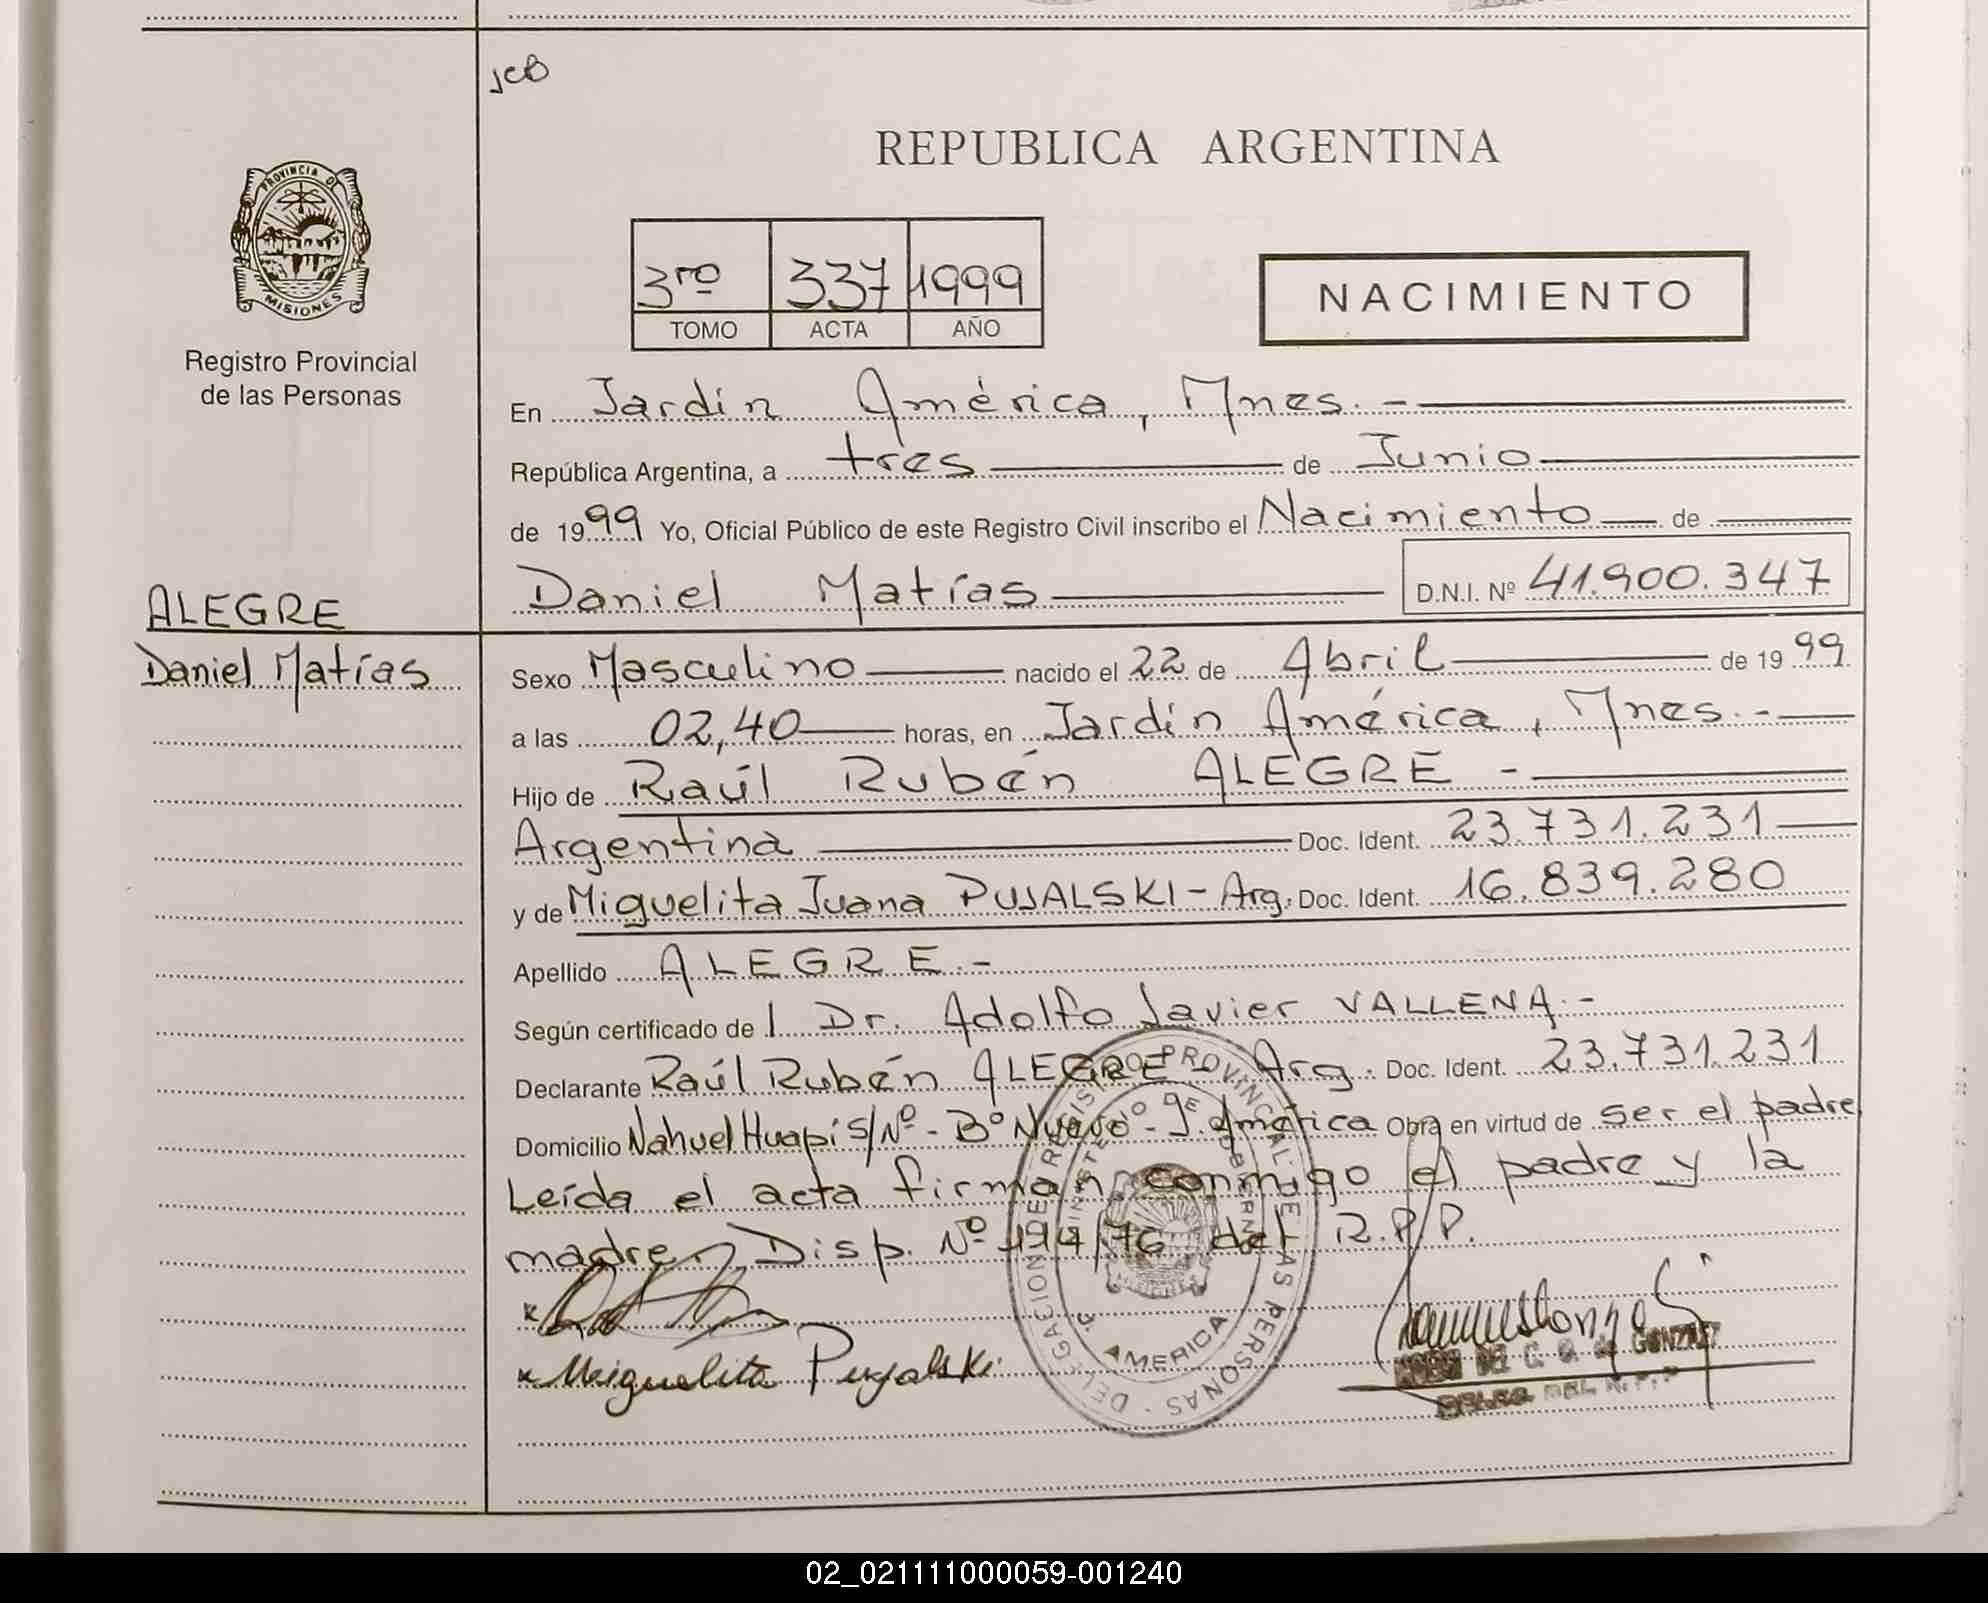 JCB
REPUBLICA ARGENTINA
PROVINCIA DE
MISIONES
Registro Provincial
de las Personas
3ro 337 1999
TOMO ACTA AÑO
NACIMIENTO
En Jardín América, Mnes. -
República Argentina, a tres de Junio
de 1999 Yo, Oficial Público de este Registro Civil inscribo el Nacimiento de
Daniel Matías D.N.I. Nº 41.900.347
ALEGRE
Daniel Matías
Sexo Masculino nacido el 22 de Abril de 1999
a las 02,40 horas, en Jardín América, Mnes. -
Hijo de Raúl Rubén ALEGRE -
Argentina Doc. Ident. 23.731.231
y de Miguelita Juana PUJALSKI - Arg. Doc. Ident. 16.839.280
Apellido ALEGRE. -
Según certificado del Dr. Adolfo Javier VALLENA. -
Declarante Raúl Rubén ALEGRE - Arg. Doc. Ident. 23.731.231
Domicilio Nahuel Huapi S/Nº - Bº Nuevo - J. América Obra en virtud de ser el padre
Leída el acta firman conmigo el padre y la
madre Disp. Nº 194/76 del R.P.P.
x Miguelita Pujalski
DELEGACION DE REGISTRO PROVINCIAL DE LAS PERSONAS
MINISTERIO DE GOBIERNO
J. AMERICA
MISIONES
DEL C. G. de GONZALEZ
DEL R.P.P
02_021111000059-001240